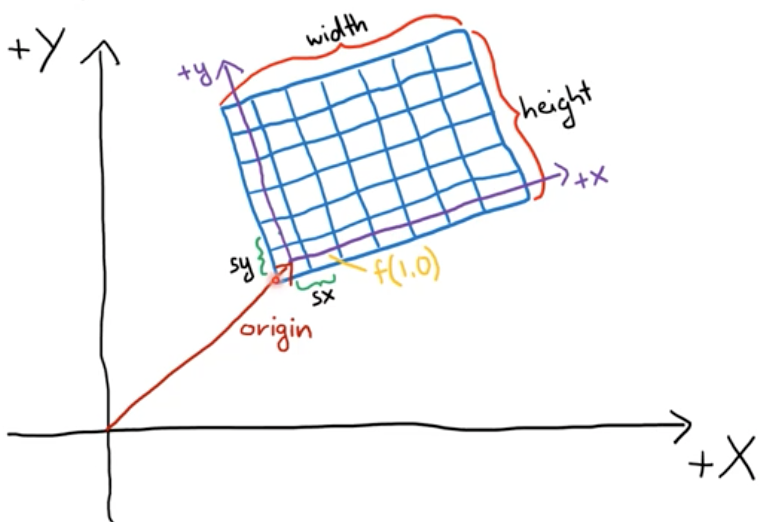 +Y
width
+y
height
+x
sy
f(1,0)
sx
origin
+X